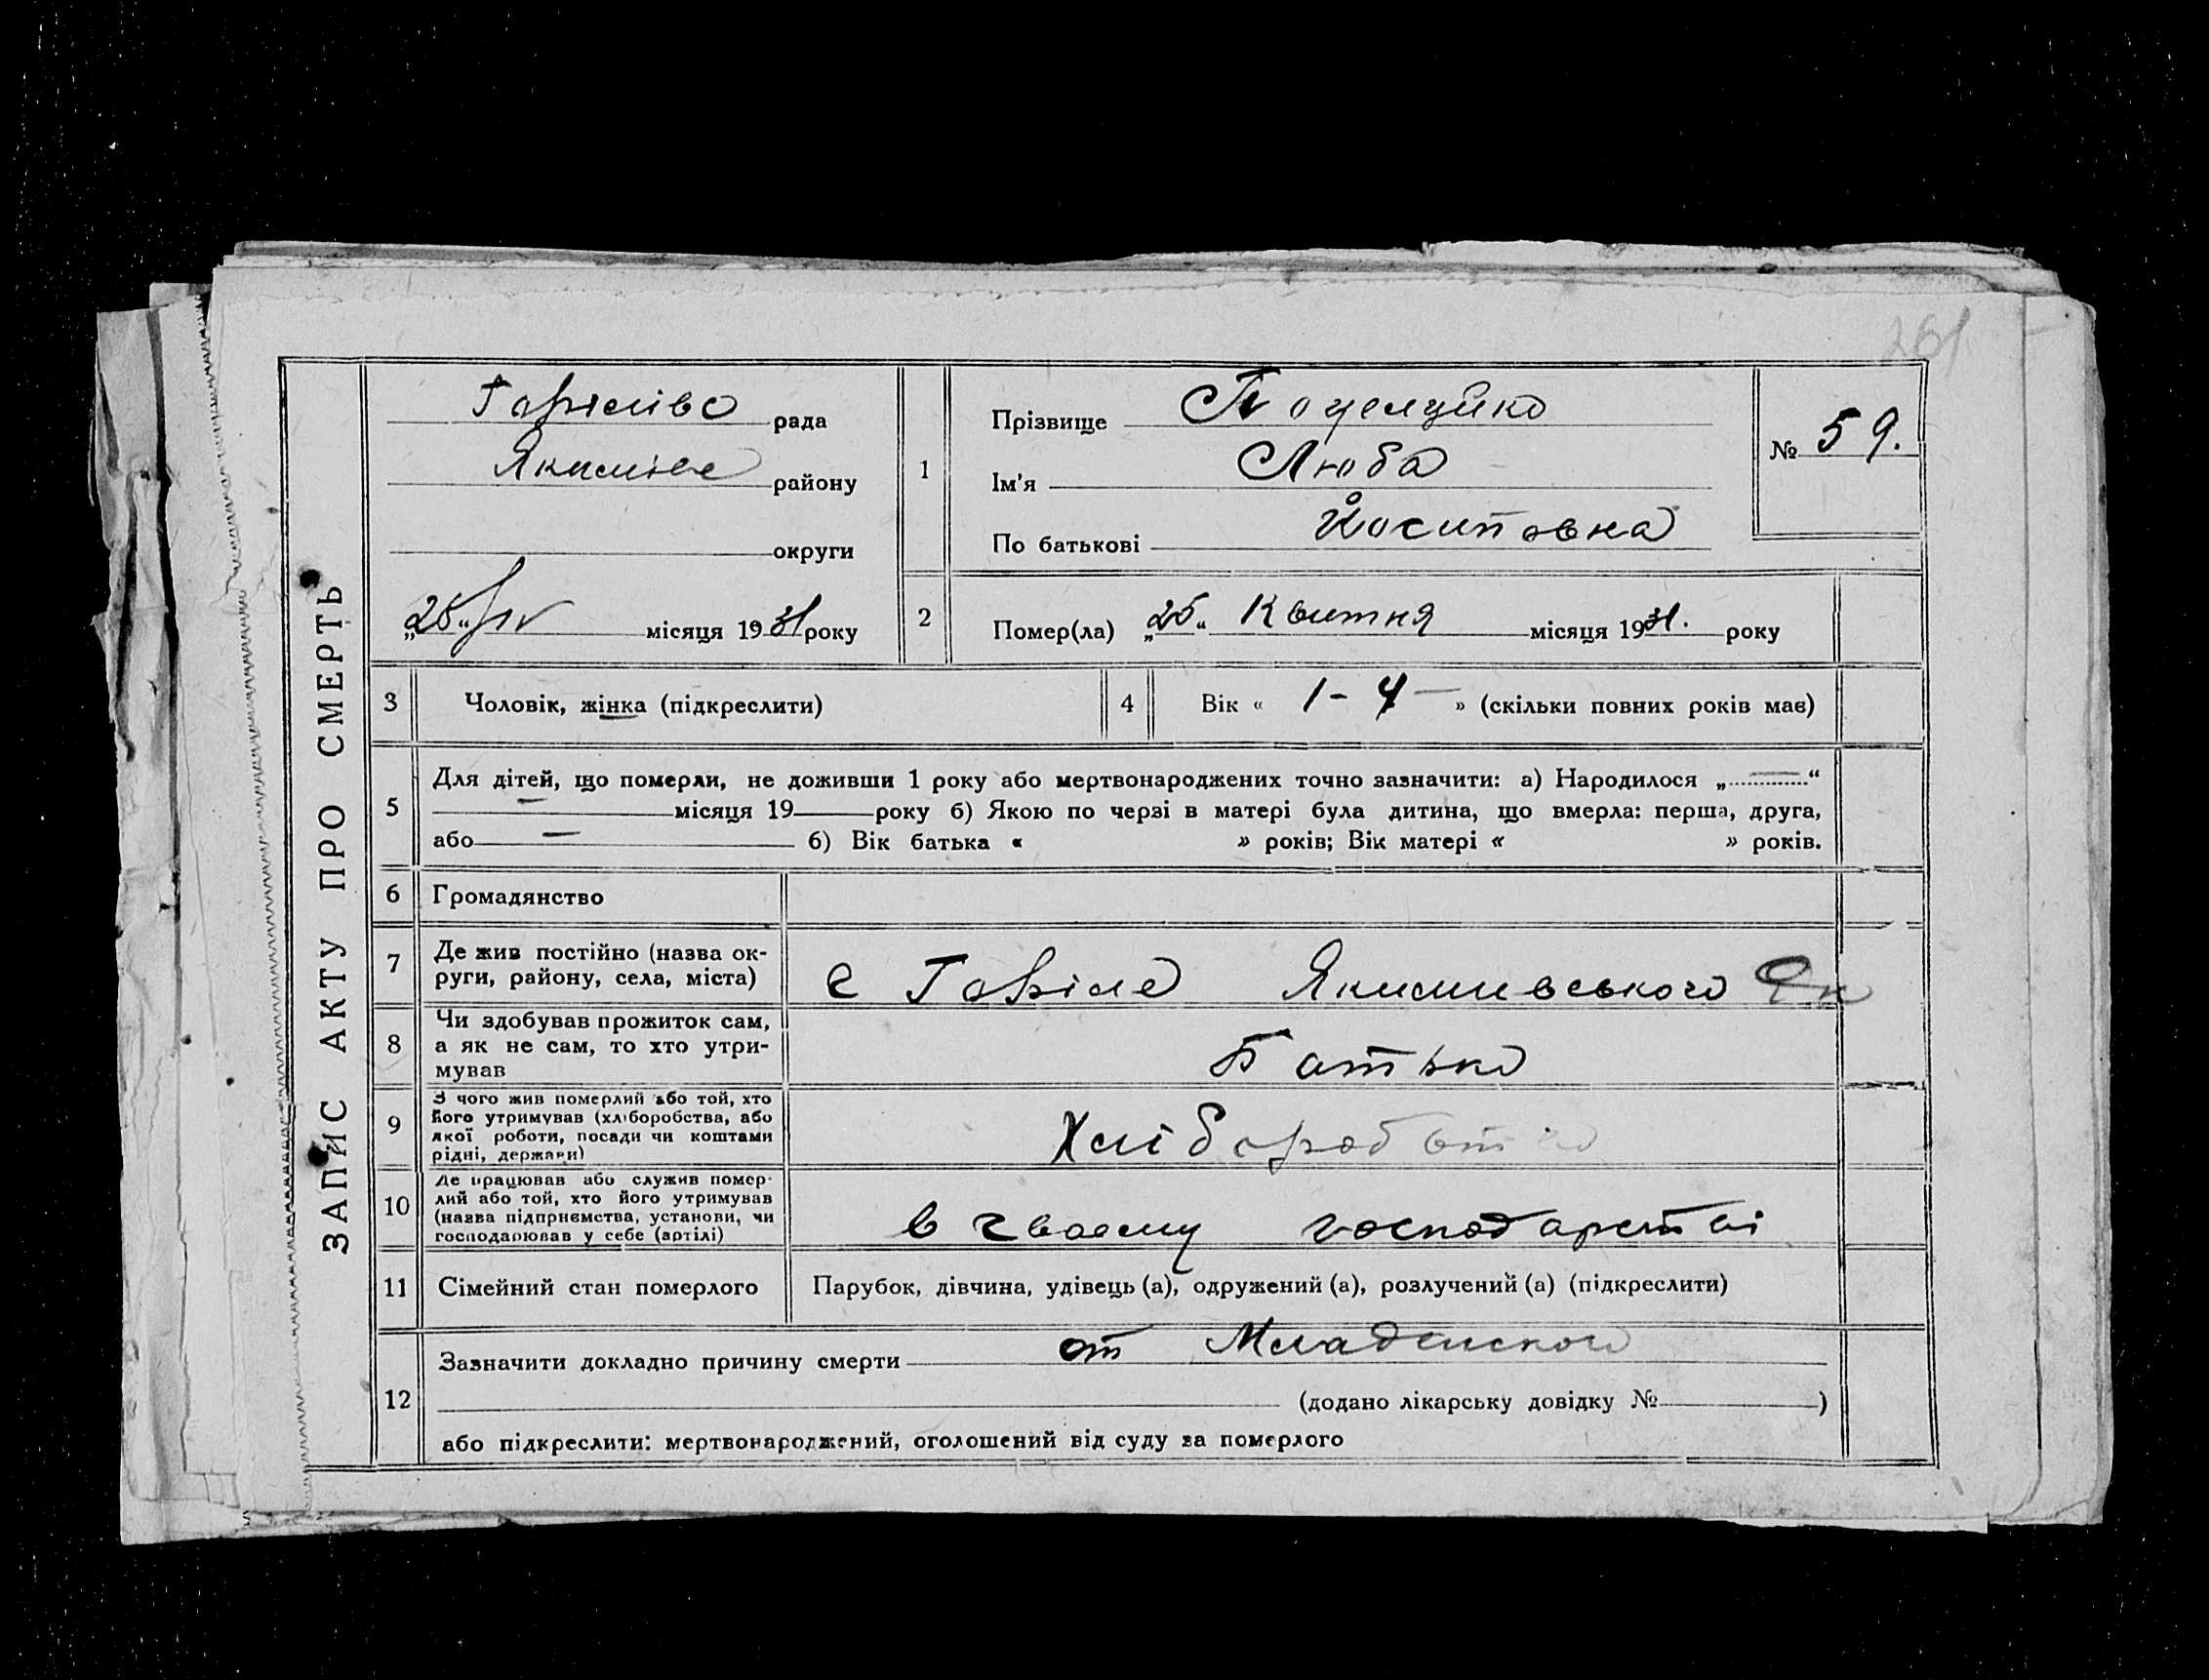 261
ЗАПИС АКТУ ПРО СМЕРТЬ
рада
району
округи
„25“ IV місяця 1931 року
1
Прізвище Поцелуйко
Ім'я Люба
По батькові Йосиповна
№ 59.
2
Помер(ла) „25“ Квитня місяця 1931. року
3
Чоловік, жінка (підкреслити)
4
Вік « 1-4 — » (скільки повних років має)
5
Для дітей, що померли, не доживши 1 року або мертвонароджених точно зазначити: а) Народилося „ — “
— місяця 19 року б) Якою по черзі в матері була дитина, що вмерла: перша, друга,
або — б) Вік батька « » років; Вік матері « » років.
6
Громадянство
7
Де жив постійно (назва ок-
руги, району, села, міста)
с Якимивського
8
Чи здобував прожиток сам,
а як не сам, то хто утри-
мував
Батько
9
З чого жив померлий або той, хто
його утримував (хліборобства, або
якої роботи, посади чи коштами
рідні, держави)
10
Де працював або служив помер-
лий або той, хто його утримував
(назва підприємства, установи, чи
господарював у себе (артілі)
в своему господарстві
11
Сімейний стан померлого
Парубок, дівчина, удівець (а), одружений (а), розлучений (а) (підкреслити)
12
Зазначити докладно причину смерти от
(додано лікарську довідку № )
або підкреслити: мертвонароджений, оголошений від суду за померлого